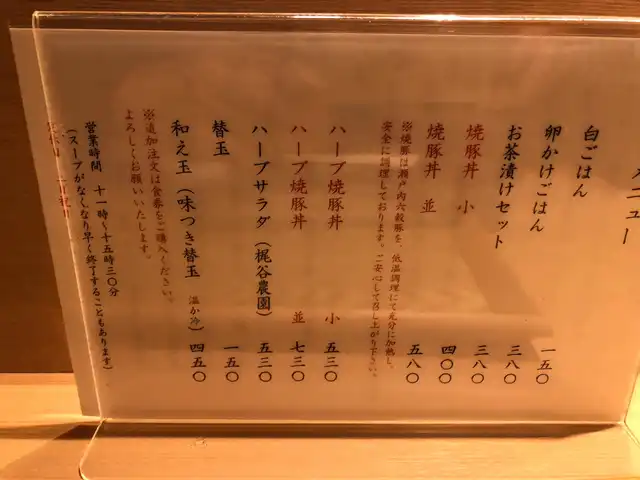 メニュー
白ごはん 一五〇
卵かけごはん 三八〇
お茶漬けセット 三八〇
焼豚丼 小 四〇〇
焼豚丼 並 五八〇
※焼豚は瀬戸内六穀豚を、低温調理にて充分に加熱し、
安全に調理しております。ご安心して召し上がり下さい。
ハーブ焼豚丼 小 五三〇
ハーブ焼豚丼 並 七三〇
ハーブサラダ（梶谷農園） 五三〇
替玉 一五〇
和え玉（味つき替玉 温か冷） 四五〇
※追加注文は食券をご購入ください。
よろしくお願いいたします。
営業時間 十一時～十五時三〇分
（スープがなくなり早く終了することもあります）